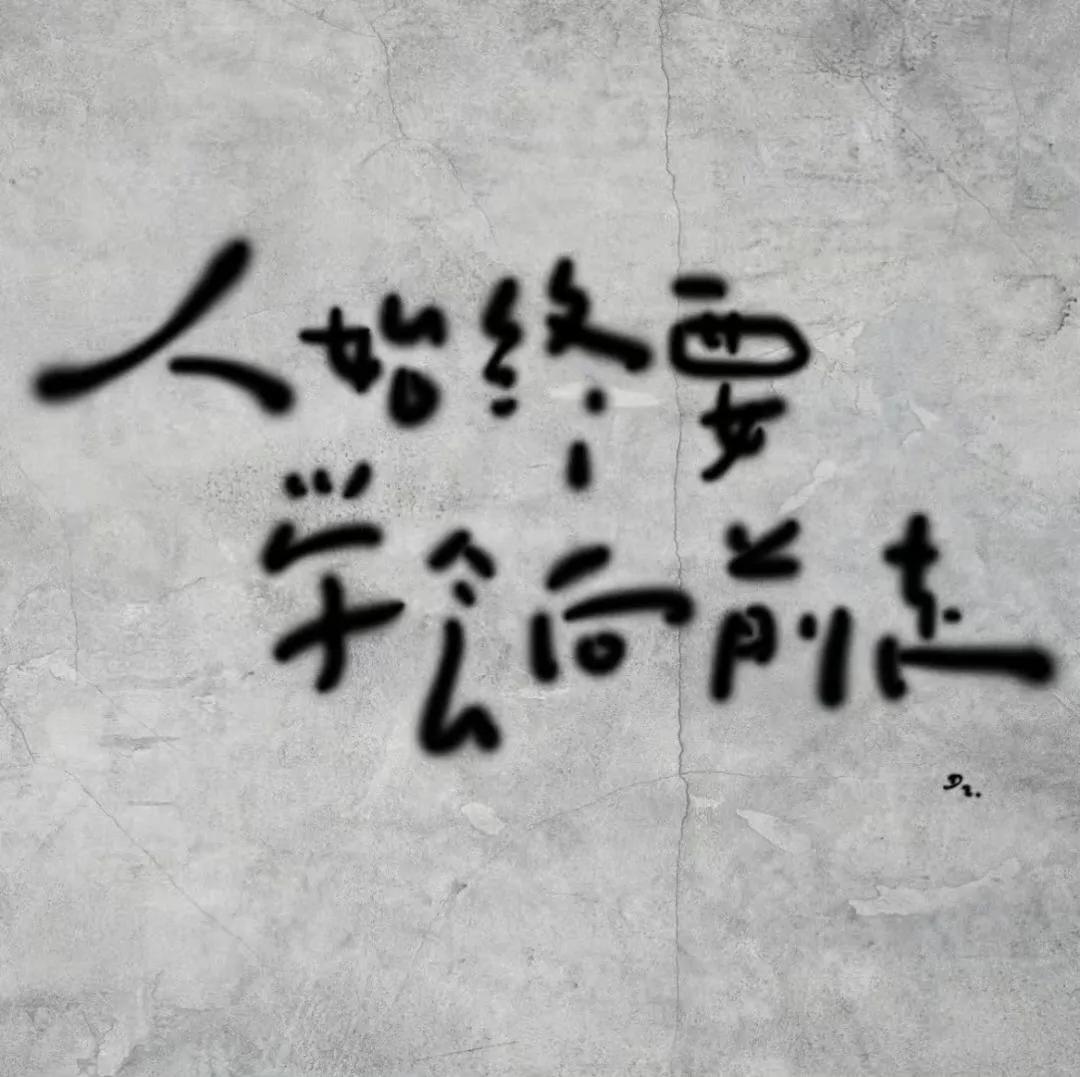 人始终要
学会向前走
Dz.